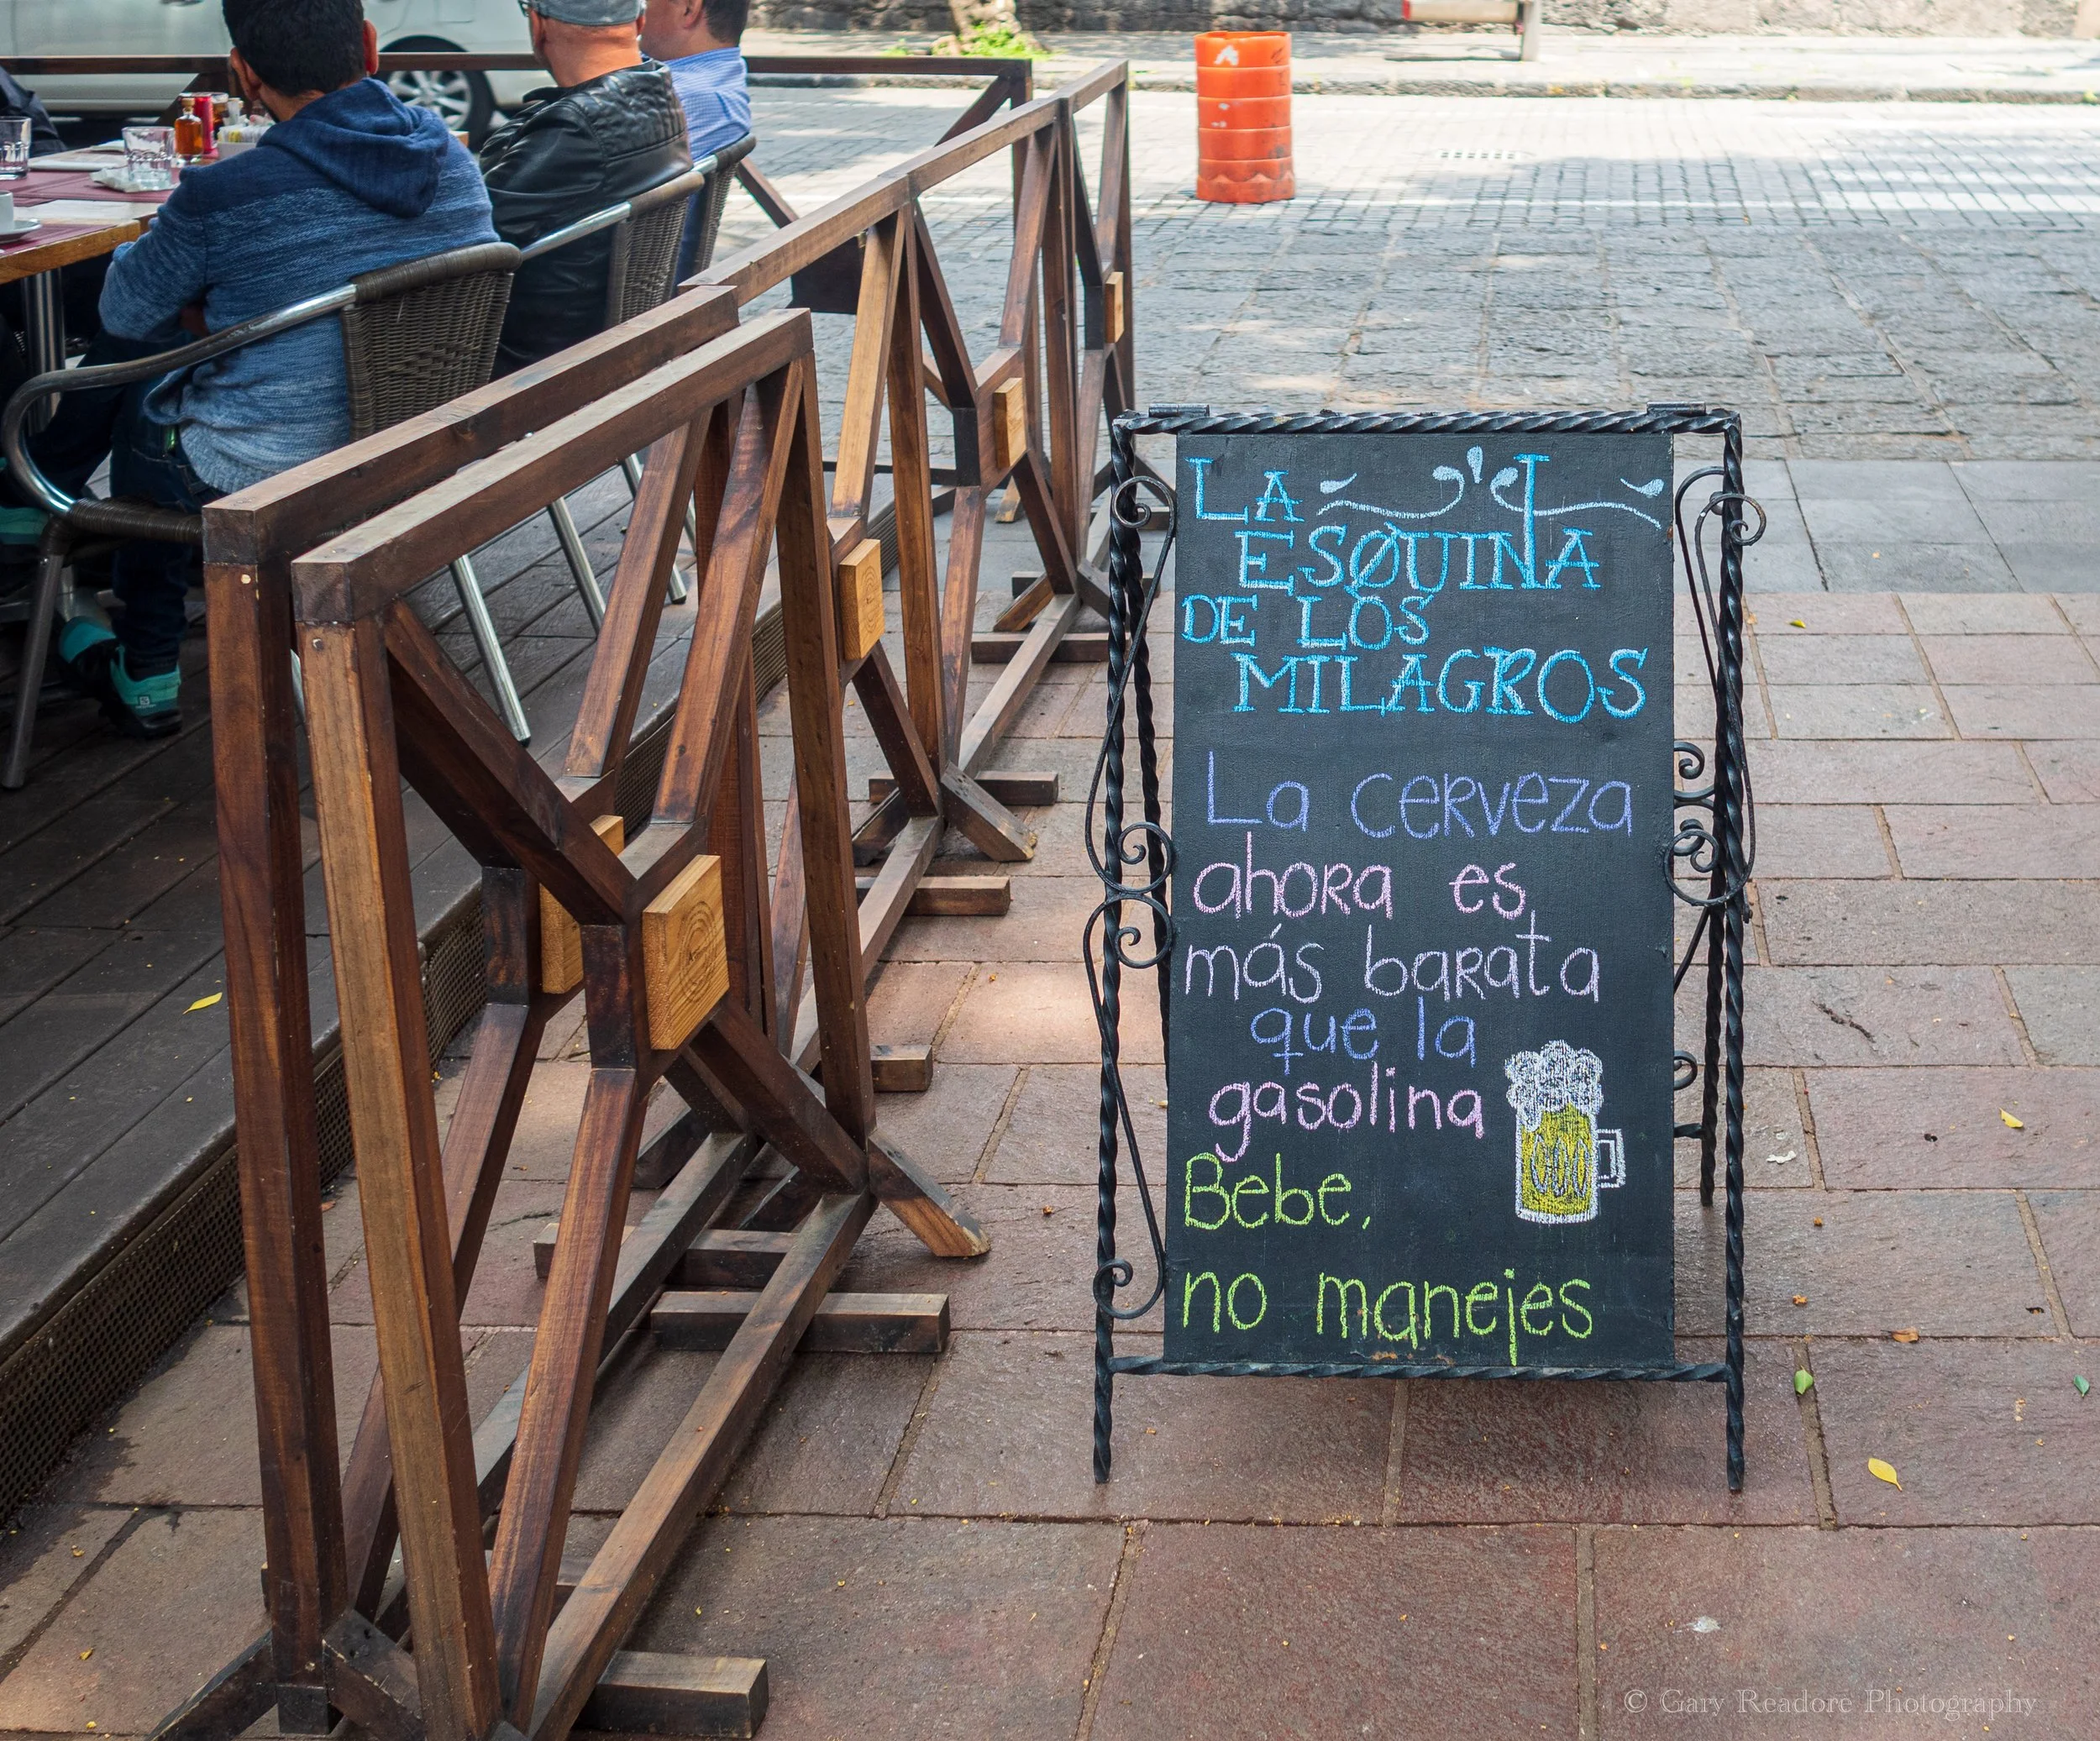 LA
ESQUINA
DE LOS
MILAGROS
La cerveza
ahora es
más barata
que la
gasolina
Bebe,
no manejes
© Gary Readore Photography